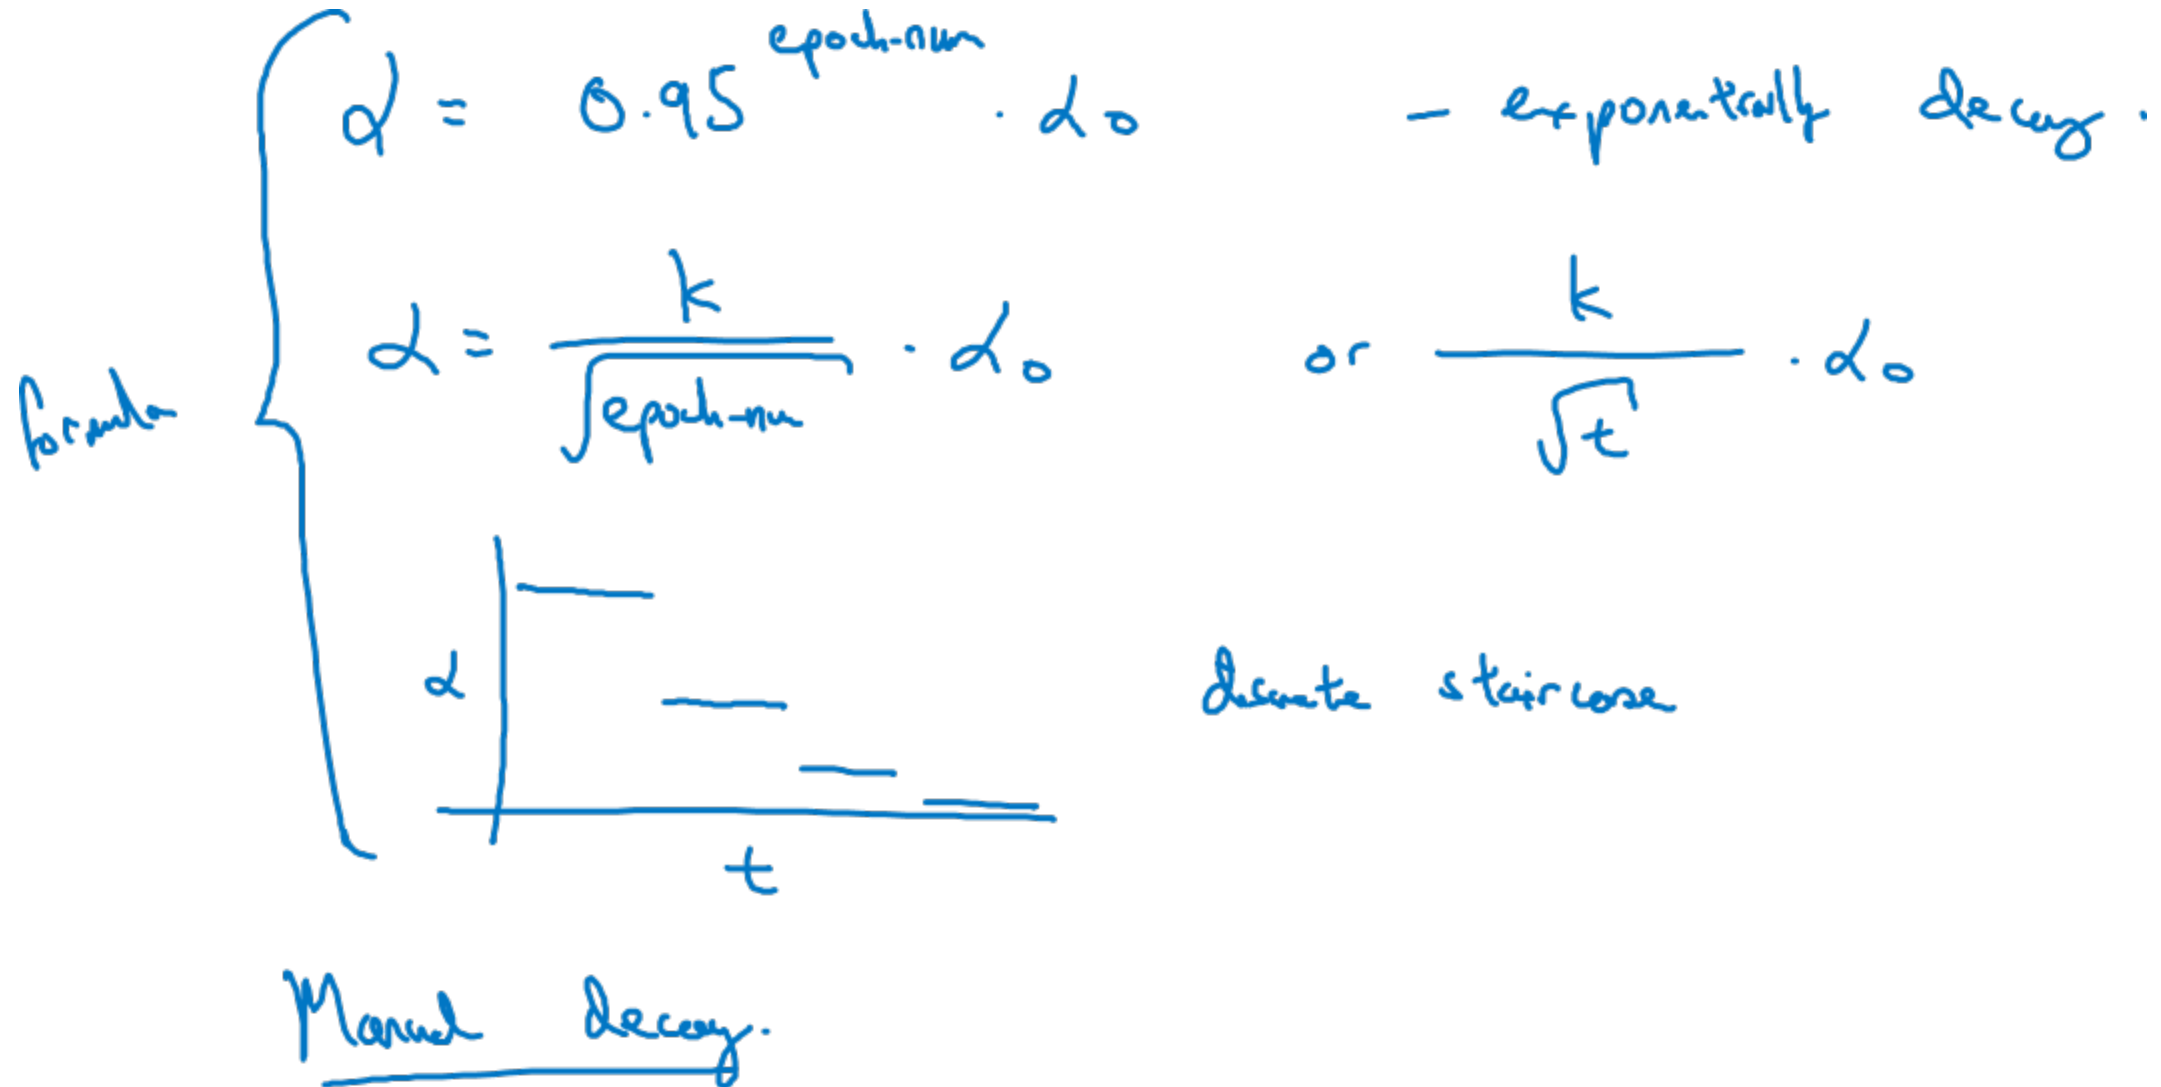 α = 0.95^epoch-num · α₀ - exponentially decay.
formula
α = k / √epoch-num · α₀ or k / √t · α₀
α
discrete staircase
t
Manual decay.